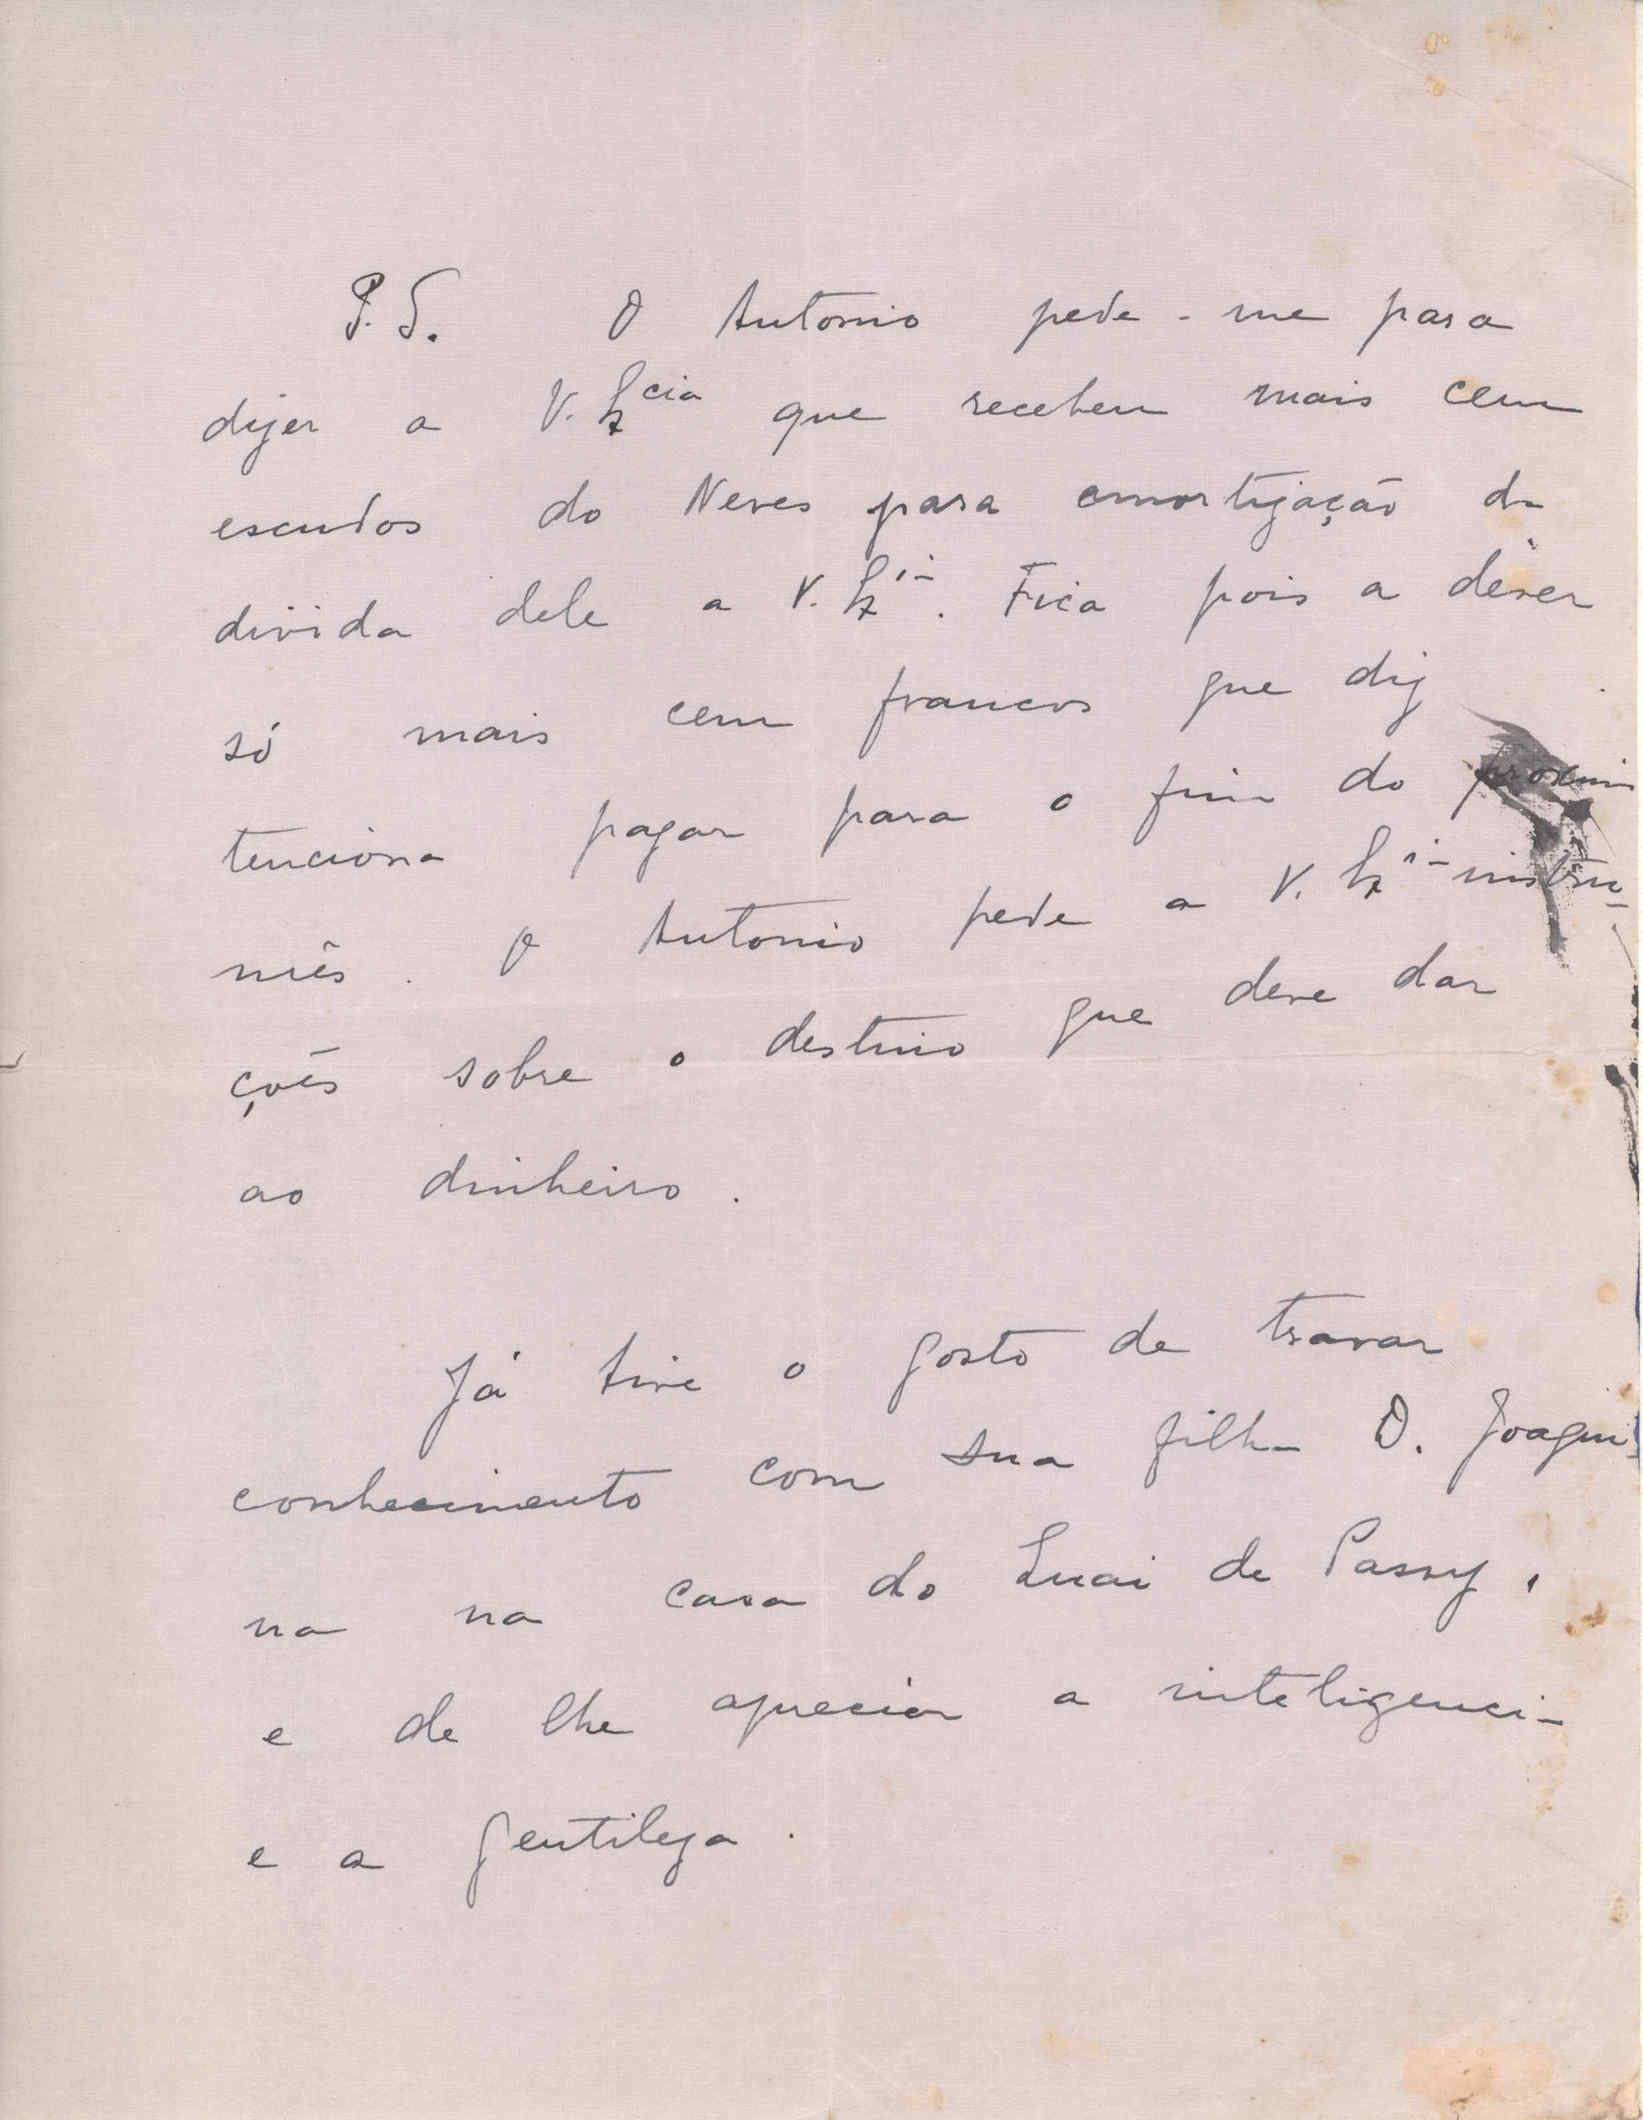 P.S. O Antonio pede-me para
dizer a V. Ex^cia que recebeu mais cem
escudos do Neves para amortização da
divida dele a V. Ex^ia. Fica pois a dever
só mais cem francos que diz
tenciona pagar para o fim do proximo
mês. O Antonio pede a V. Ex^ia instru-
ções sobre o destino que deve dar
ao dinheiro.
Já tive o gosto de travar
conhecimento com sua filha D. Joaqui
na na casa do de Passy,
e de lhe apreciar a inteligencia
e a gentileza.